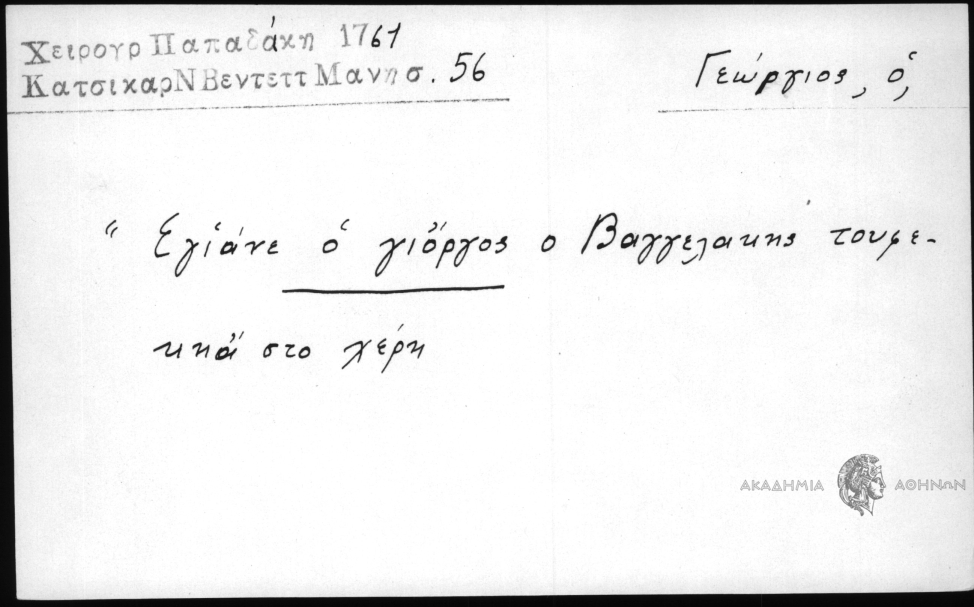 Χειρογρ Παπαδάκη 1761
Κατσικαρ Ν Βεντεττ Μανη σ. 56
Γεώργιος, ὁ,
“ Εγίάνε ὁ γιὄργος ο Βαγγελακης τουφε-
κηἄ στο χέρη
ΑΚΑΔΗΜΙΑ ΑΘΗΝΩΝ